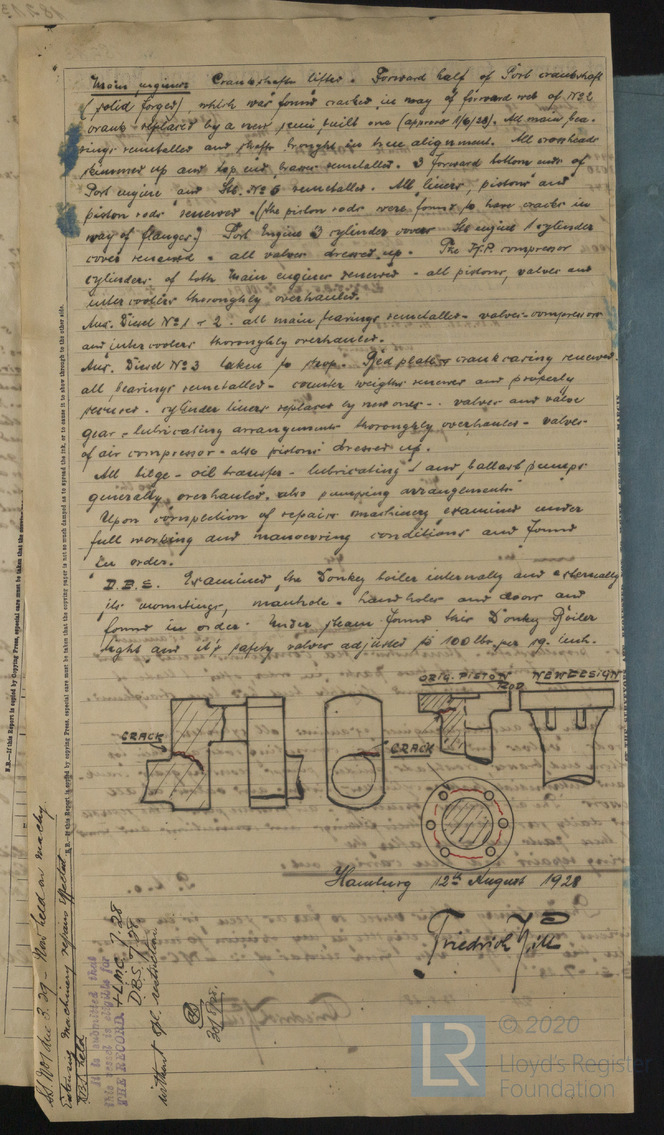 Main engines Crankshafts lifted. Forward half of Port crankshaft
(solid forged) which was found cracked in way of forward web of No 2
crank replaced by a new semi built one (approved 1/6/28). All main bea-
rings remetalled and shafts brought in true alignment. All crossheads
skimmed up and top end brasses remetalled. 3 forward bottom ends of
Port engine and Stb. No 6 remetalled. All liners, pistons and
piston rods renewed. (The piston rods were found to have cracks in
way of flanges) Port Engine 3 cylinder covers Stb engine 1 cylinder
cover renewed. all valves dressed up. The H.P. compressor
cylinders of both main engines renewed - all pistons, valves and
intercoolers thoroughly overhauled.
Aux. Diesel No 1 & 2: all main bearings remetalled - valves - compressors
and intercoolers thoroughly overhauled.
Aux. Diesel No 3 taken to shop. Bedplate & crankcasing renewed.
all bearings remetalled - counter weights renewed and properly
secured. cylinder liners replaced by new ones - valves and valve
gear - lubricating arrangements thoroughly overhauled - valves
of air compressor - also pistons dressed up.
All bilge - oil transfer - lubricating & and ballast pumps
generally overhauled, also pumping arrangements
Upon completion of repairs machinery examined under
full working and manoevring conditions and found
in order.
D.B.S. Examined the Donkey boiler internally and externally
its mountings, manhole - handholes and doors and
found in order. Under steam found this Donkey Boiler
tight and it's safety valves adjusted to 100 lbs per sq. inch.
ORIG. PISTON ROD NEW DESIGN
CRACK
CRACK
Hamburg 12th August 1928
N.B.—If this Report is copied by Copying Press, special care must be taken that the copying paper is not so much damped as to spread the ink, or to cause it to show through to the other side.
Extensive machinery repairs effected
It is submitted that
this vessel is eligible for
THE RECORD. + LMC 7.28
DBS 7.28
© 2020
Lloyd's Register
Foundation
LR